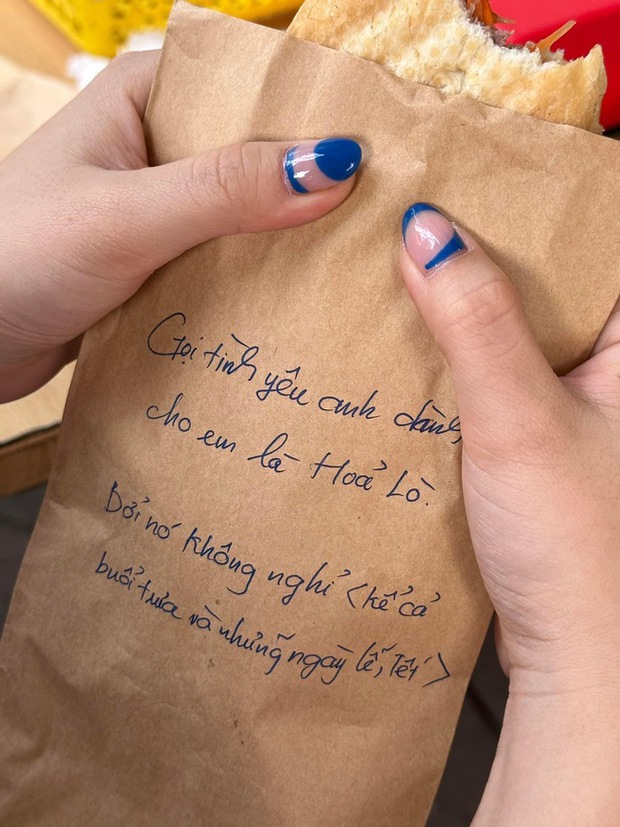 Gọi tình yêu anh dành
cho em là Hoả Lò.
Bởi nó không nghỉ <kể cả
buổi trưa và những ngày lễ, Tết>